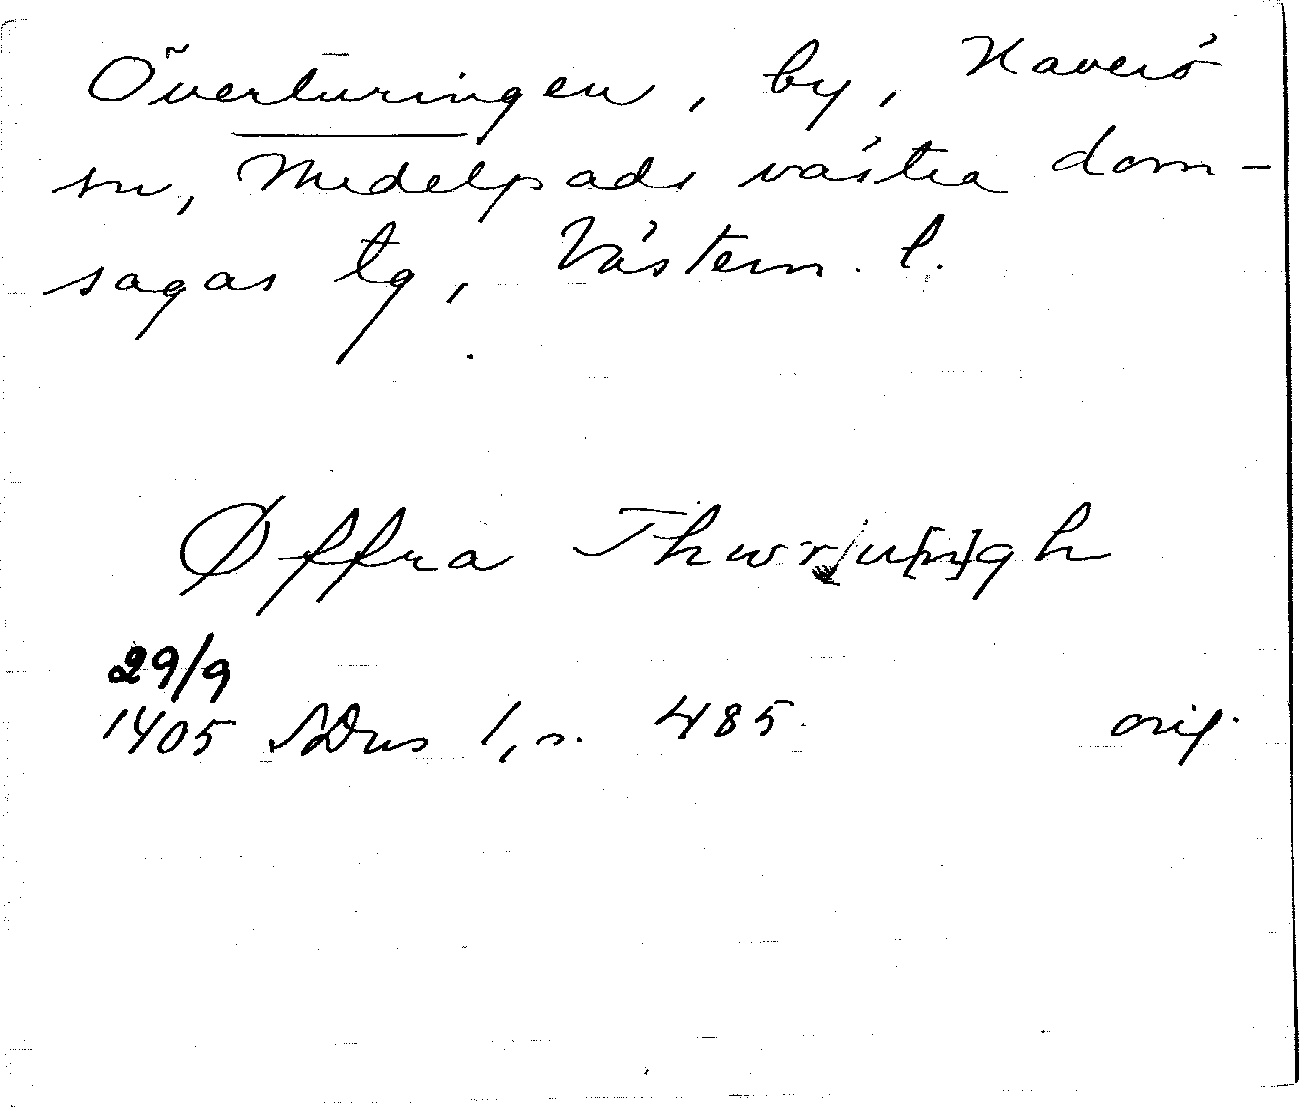 Överturingen, by, Haverö
sn, Medelpads västra dom-
sagas tg, Västern. l.
Øffra Thwr/u[n]gh
29/9
1405 SDns 1, s. 485. orig.